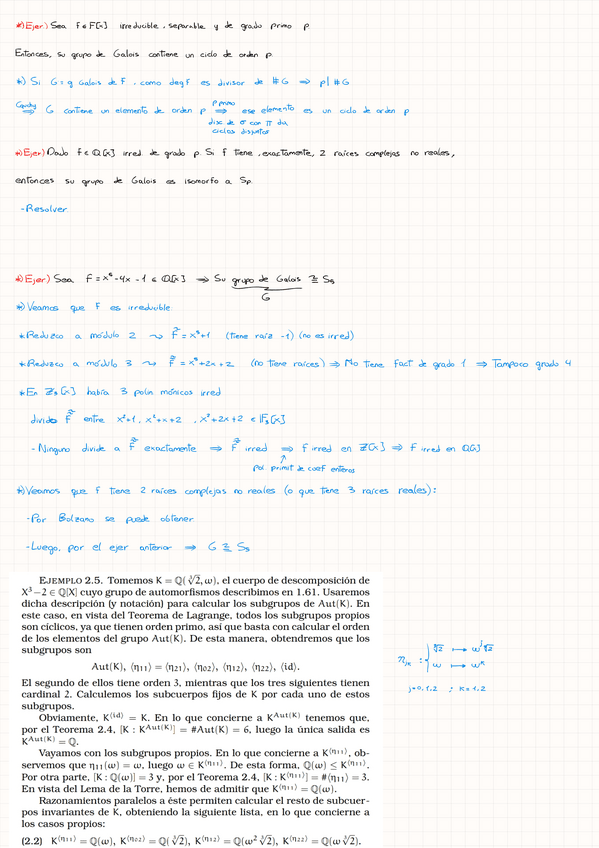 *) Ejer) Sea f ∈ F[x] irreducible, separable y de grado primo p.
Entonces, su grupo de Galois contiene un ciclo de orden p.
*) Si G = g Galois de F. como deg f es divisor de #G ⇒ p | #G
Cauchy ⇒ G contiene un elemento de orden p p primo ⇒ ese elemento es un ciclo de orden p
disc de σ con π du
ciclos disjuntos
*) Ejer) Dado f ∈ Q[x] irred de grado p. Si f tiene, exactamente, 2 raíces complejas no reales,
entonces su grupo de Galois es isomorfo a Sp.
- Resolver.
*) Ejer) Sea f = x⁵-4x-1 ∈ Q[x] ⇒ Su grupo de Galois ≅ S₅
G
*) Veamos que f es irreducible:
* Reduzco a módulo 2 ⇝ f̃ = x⁵+1 (tiene raíz -1) (no es irred)
* Reduzco a módulo 3 ⇝ f̃̃ = x⁵+2x+2 (no tiene raíces) ⇒ No tiene fact de grado 1 ⇒ Tampoco grado 4
* En Z₃[x] había 3 polin mónicos irred
divido f̃̃ entre x²+1, x²+x+2, x²+2x+2 ∈ F₃[x]
- Ninguno divide a f̃̃ exactamente ⇒ f̃̃ irred ⇒ f irred en Z[x] ⇒ f irred en Q[x]
↑
pol primit de coef enteros
*) Veamos que f tiene 2 raíces complejas no reales (o que tiene 3 raíces reales):
- Por Bolzano se puede obtener
- Luego, por el ejer anterior ⇒ G ≅ S₅
EJEMPLO 2.5. Tomemos K = Q(∛2, ω), el cuerpo de descomposición de
X³ − 2 ∈ Q[X] cuyo grupo de automorfismos describimos en 1.61. Usaremos
dicha descripción (y notación) para calcular los subgrupos de Aut(K). En
este caso, en vista del Teorema de Lagrange, todos los subgrupos propios
son cíclicos, ya que tienen orden primo, así que basta con calcular el orden
de los elementos del grupo Aut(K). De esta manera, obtendremos que los
subgrupos son
Aut(K), ⟨η₁₁⟩ = ⟨η₂₁⟩, ⟨η₀₂⟩, ⟨η₁₂⟩, ⟨η₂₂⟩, ⟨id⟩.
El segundo de ellos tiene orden 3, mientras que los tres siguientes tienen
cardinal 2. Calculemos los subcuerpos fijos de K por cada uno de estos
subgrupos.
Obviamente, K^⟨id⟩ = K. En lo que concierne a K^Aut(K) tenemos que,
por el Teorema 2.4, [K : K^Aut(K)] = #Aut(K) = 6, luego la única salida es
K^Aut(K) = Q.
Vayamos con los subgrupos propios. En lo que concierne a K^⟨η₁₁⟩, ob-
servemos que η₁₁(ω) = ω, luego ω ∈ K^⟨η₁₁⟩. De esta forma, Q(ω) ≤ K^⟨η₁₁⟩.
Por otra parte, [K : Q(ω)] = 3 y, por el Teorema 2.4, [K : K^⟨η₁₁⟩] = #⟨η₁₁⟩ = 3.
En vista del Lema de la Torre, hemos de admitir que K^⟨η₁₁⟩ = Q(ω).
Razonamientos paralelos a éste permiten calcular el resto de subcuer-
pos invariantes de K, obteniendo la siguiente lista, en lo que concierne a
los casos propios:
(2.2) K^⟨η₁₁⟩ = Q(ω), K^⟨η₀₂⟩ = Q(∛2), K^⟨η₁₂⟩ = Q(ω²∛2), K^⟨η₂₂⟩ = Q(ω∛2).
η_jk : { ∛2 ↦ ω^j ∛2
ω ↦ ω^k
j=0,1,2 ; k=1,2